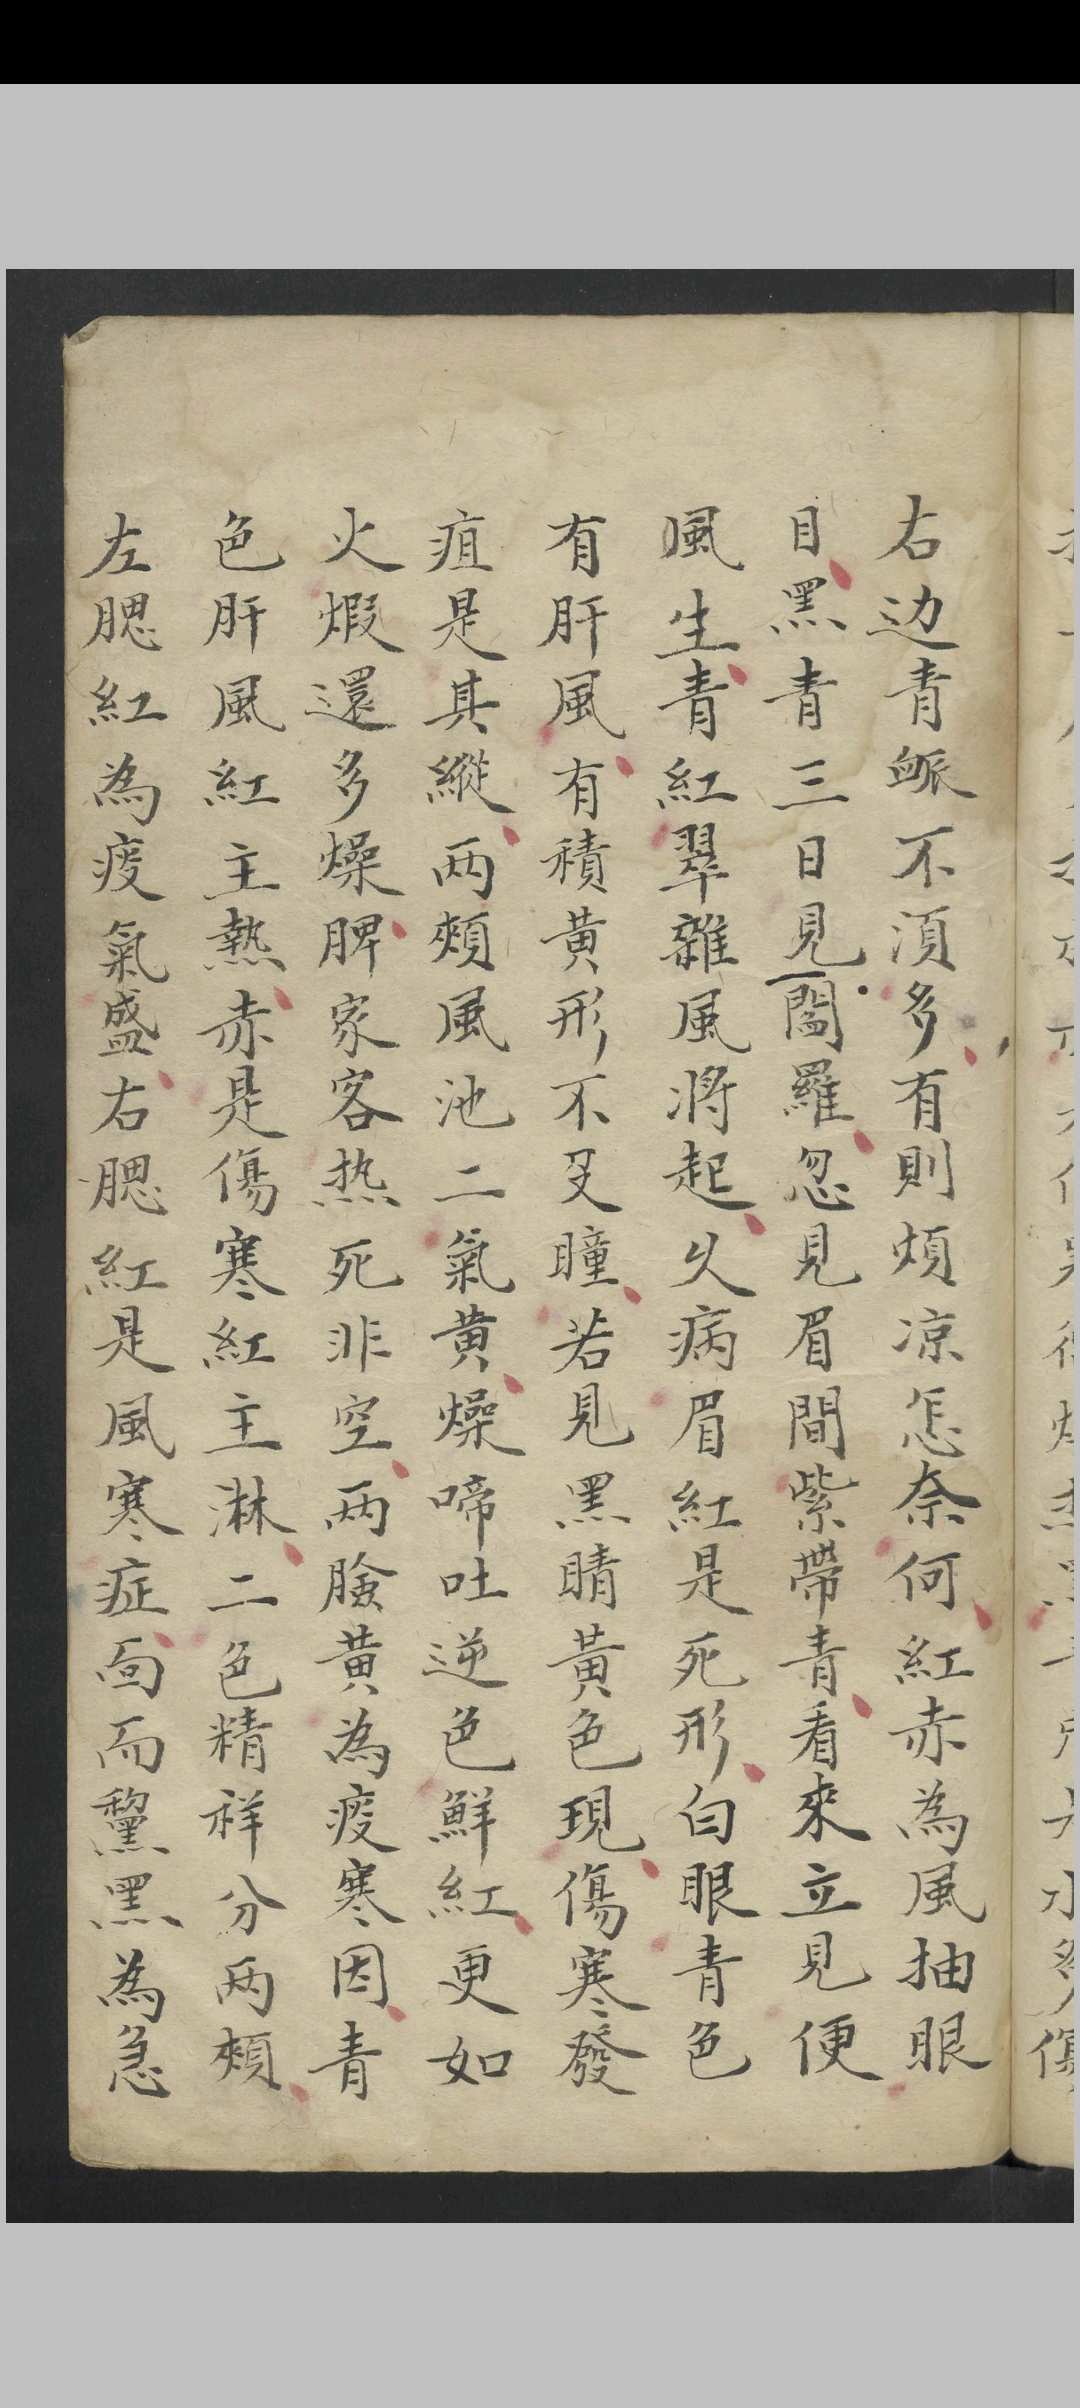 右边青衇不湏多有則煩凉怎奈何紅赤為風抽眼
目黑青三日見閻羅忽見眉間紫帶青看來立見便
風生青紅翠雜風將起乆病眉紅是死形白眼青色
有肝風有積黃形不叉瞳若見黑睛黃色現傷寒發
疽是其縱兩頰風池二氣黃燥啼吐逆色鮮紅更如
火煆還多燥脾家客热死非空兩臉黃為痰寒因青
色肝風紅主熱赤是傷寒紅主淋二色精祥分兩頰
左腮紅為痰氣盛右腮紅是風寒症面而黧黑為急